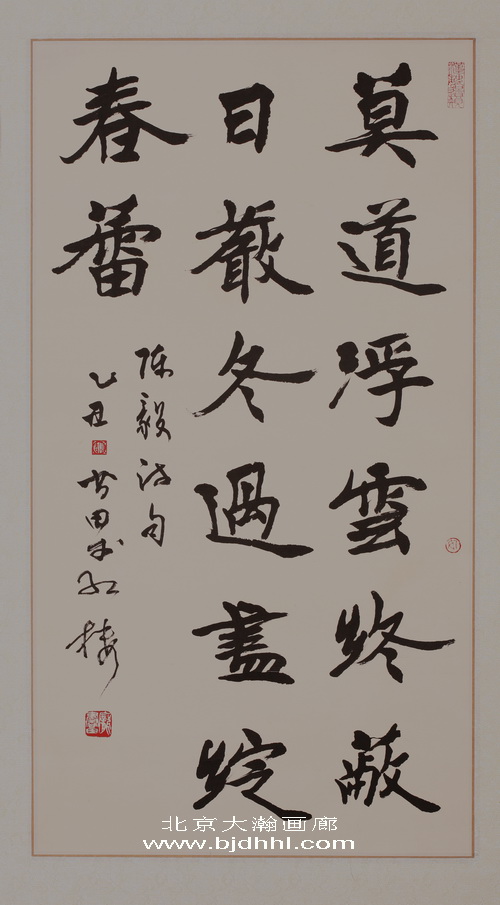 莫道浮雲終蔽
日嚴冬過盡綻
春蕾
陈毅诗句
乙丑
北京大瀚画廊
www.bjdhhl.com